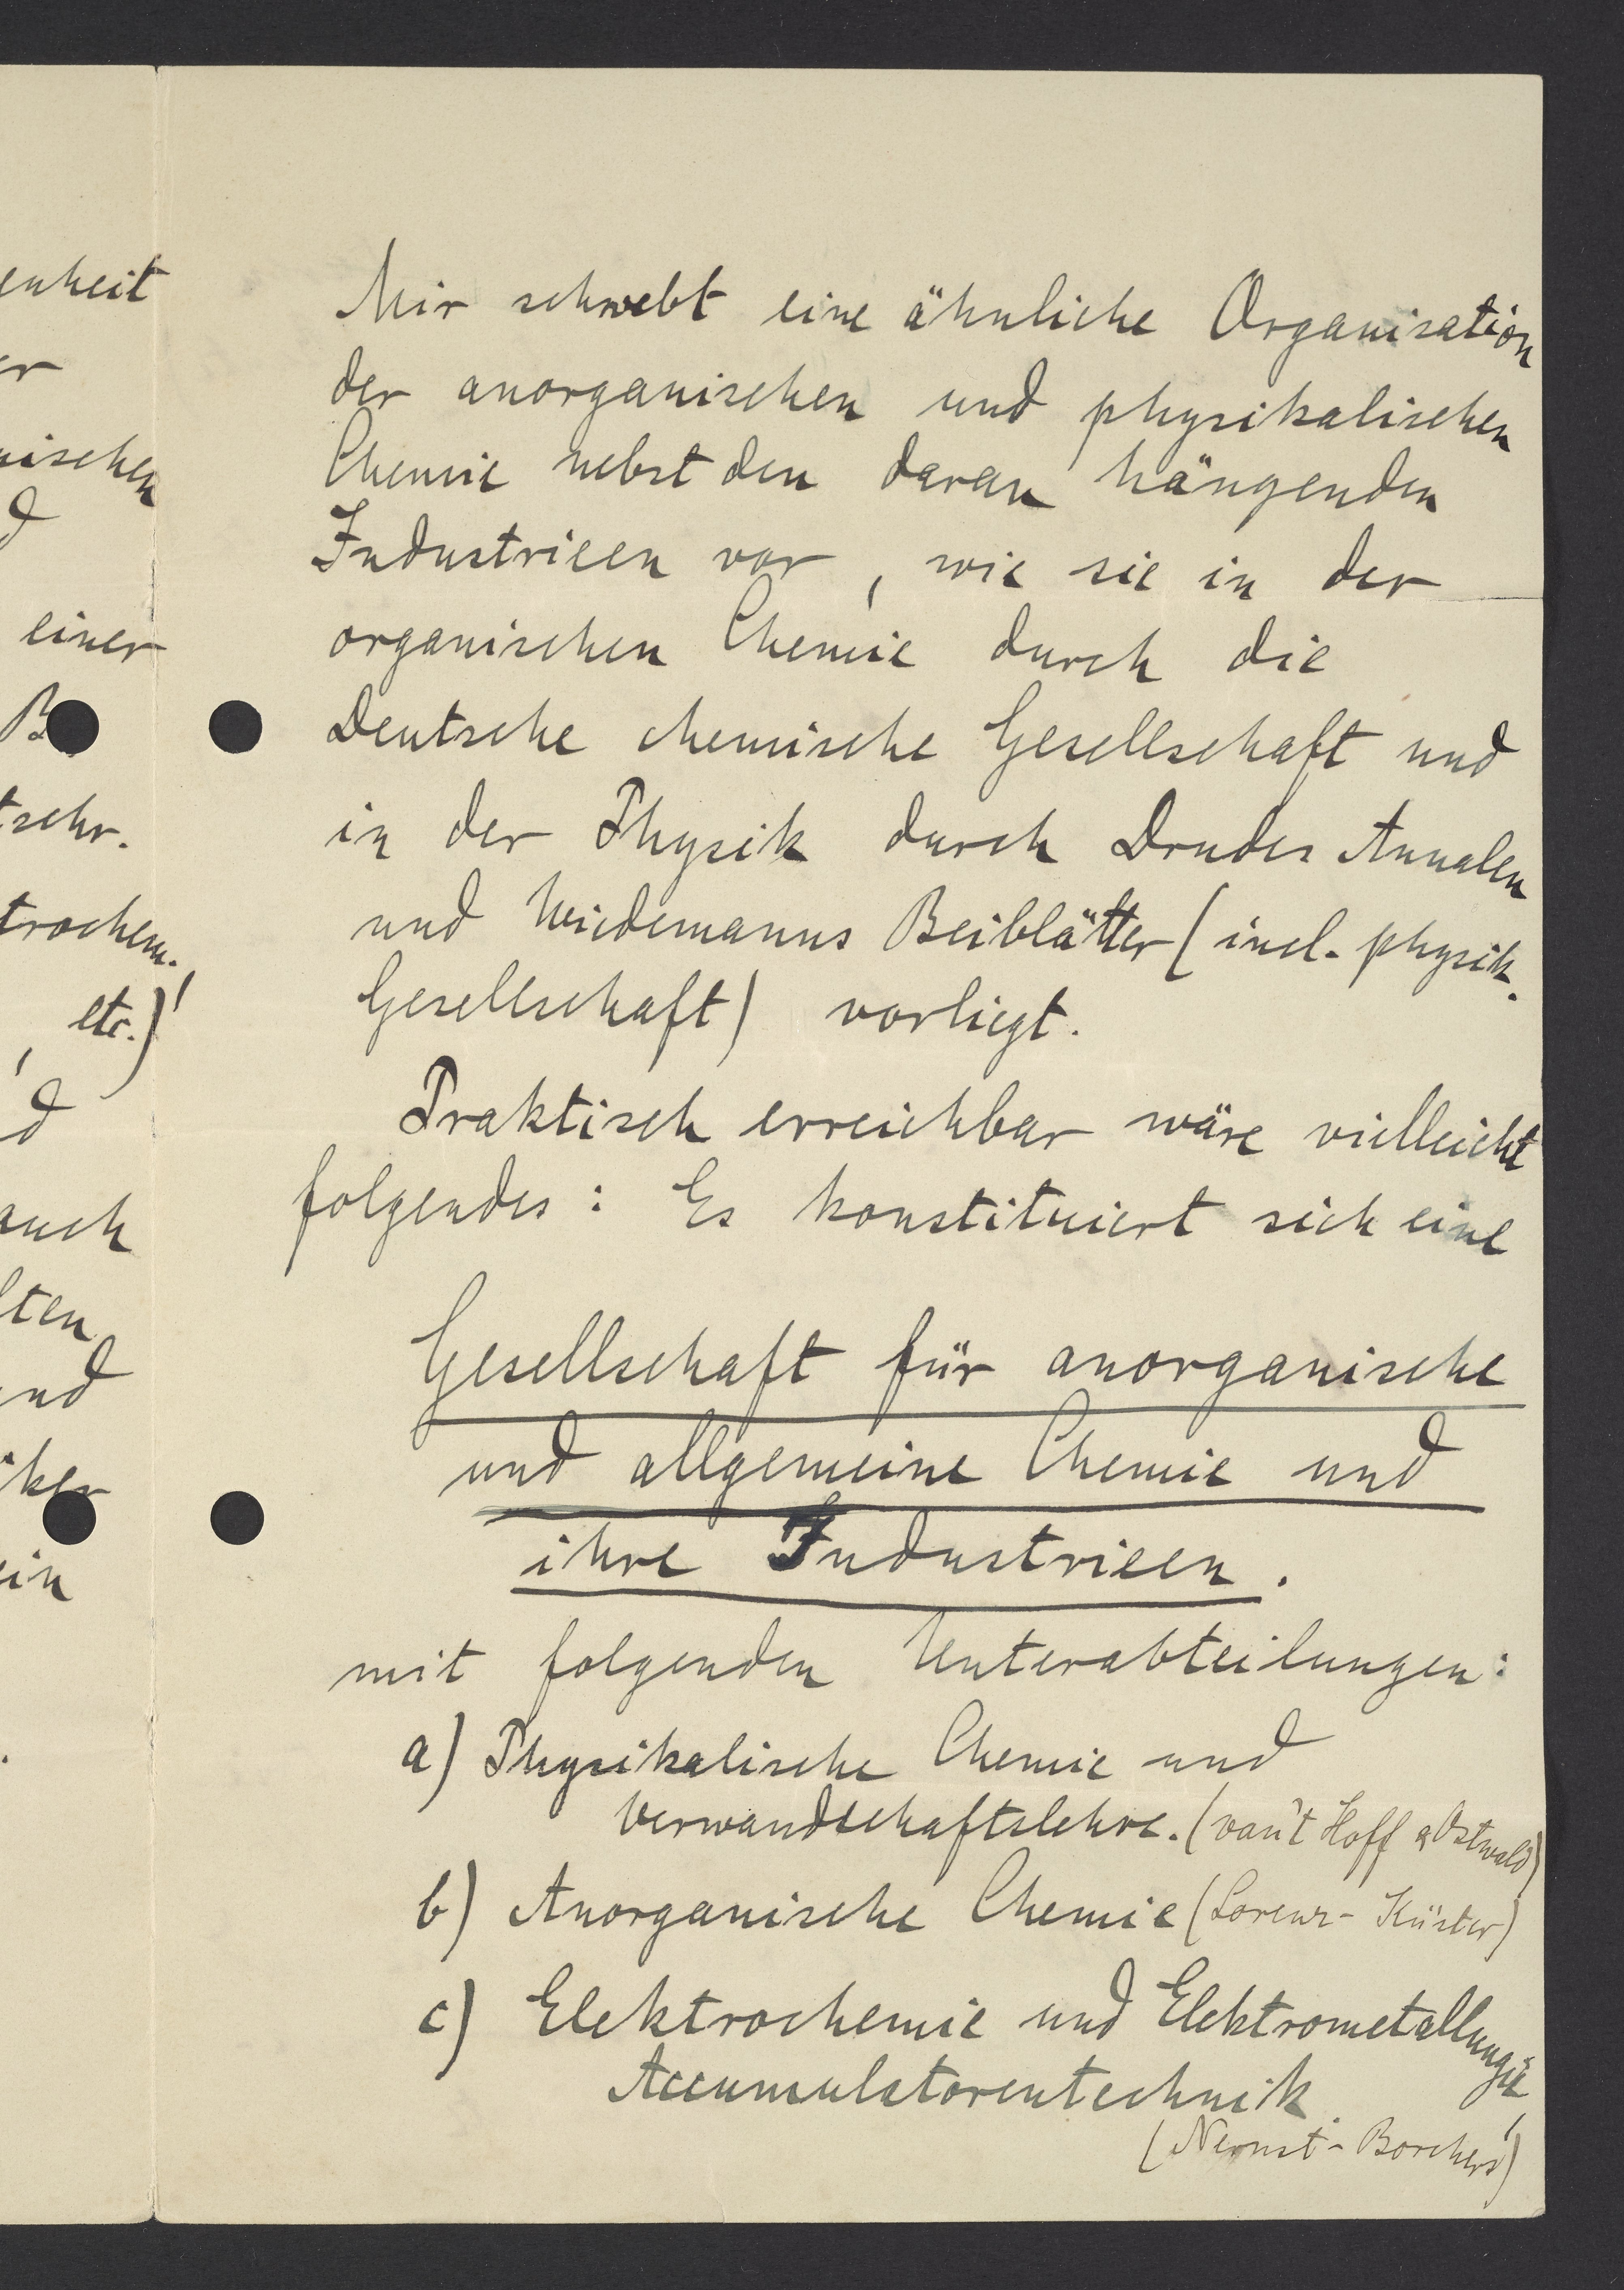 enheit
er
nischen
d
einer
tschr.
trochem.
, etc.)
d
auch
ten
und
iker
ein
Mir schwebt eine ähnliche Organisation
der anorganischen und physikalischen
Chemie nebst den daran hängenden
Industrieen vor, wie sie in der
organischen Chemie durch die
Deutsche chemische Gesellschaft und
in der Physik durch Drudes Annalen
und Wiedemanns Beiblätter (incl. physik.
Gesellschaft) vorliegt.
Praktisch erreichbar wäre vielleicht
folgendes: Es konstituiert sich eine
Gesellschaft für anorganische
und allgemeine Chemie und
ihre Industrieen.
mit folgenden Unterabteilungen:
a) Physikalische Chemie und
Verwandschaftslehre. (van't Hoff & Ostwald)
b) Anorganische Chemie (Lorenz - Küster)
c) Elektrochemie und Elektrometallurgie,
Accumulatorentechnik.
(Nernst - Borchers)